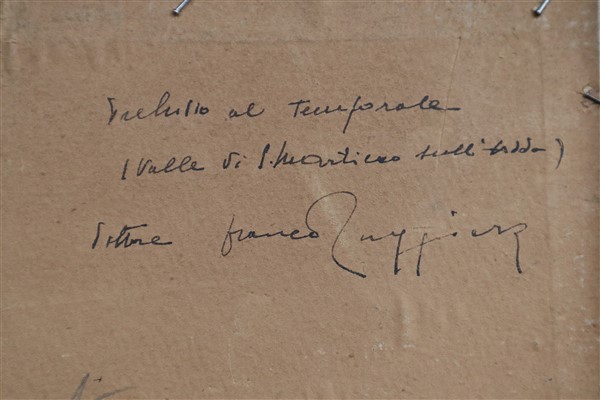 Preludio al temporale
(Valle di S. Martino sull'Adda)
Pittore Franco Ruggieri